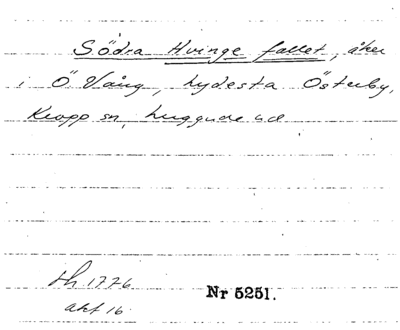 Södra Hvinge fallet, åker
i Ö Vång, Rydesta Österby,
Kropp sn, Luggude hd
Lh 1776
akt 16
Nr 5251.